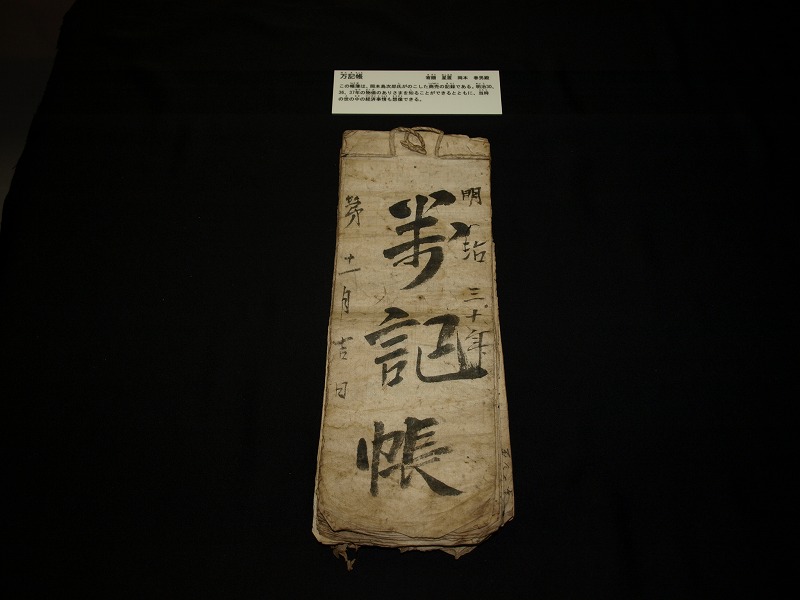 万記帳 寄贈 足尾 岡本 春男殿
この帳簿は、岡本島次郎氏がのこした商売の記録である。明治30、
36、37年の物価のありさまを知ることができるとともに、当時
の世の中の経済事情も想像できる。
明治三十年
萬記帳
第十一月吉日